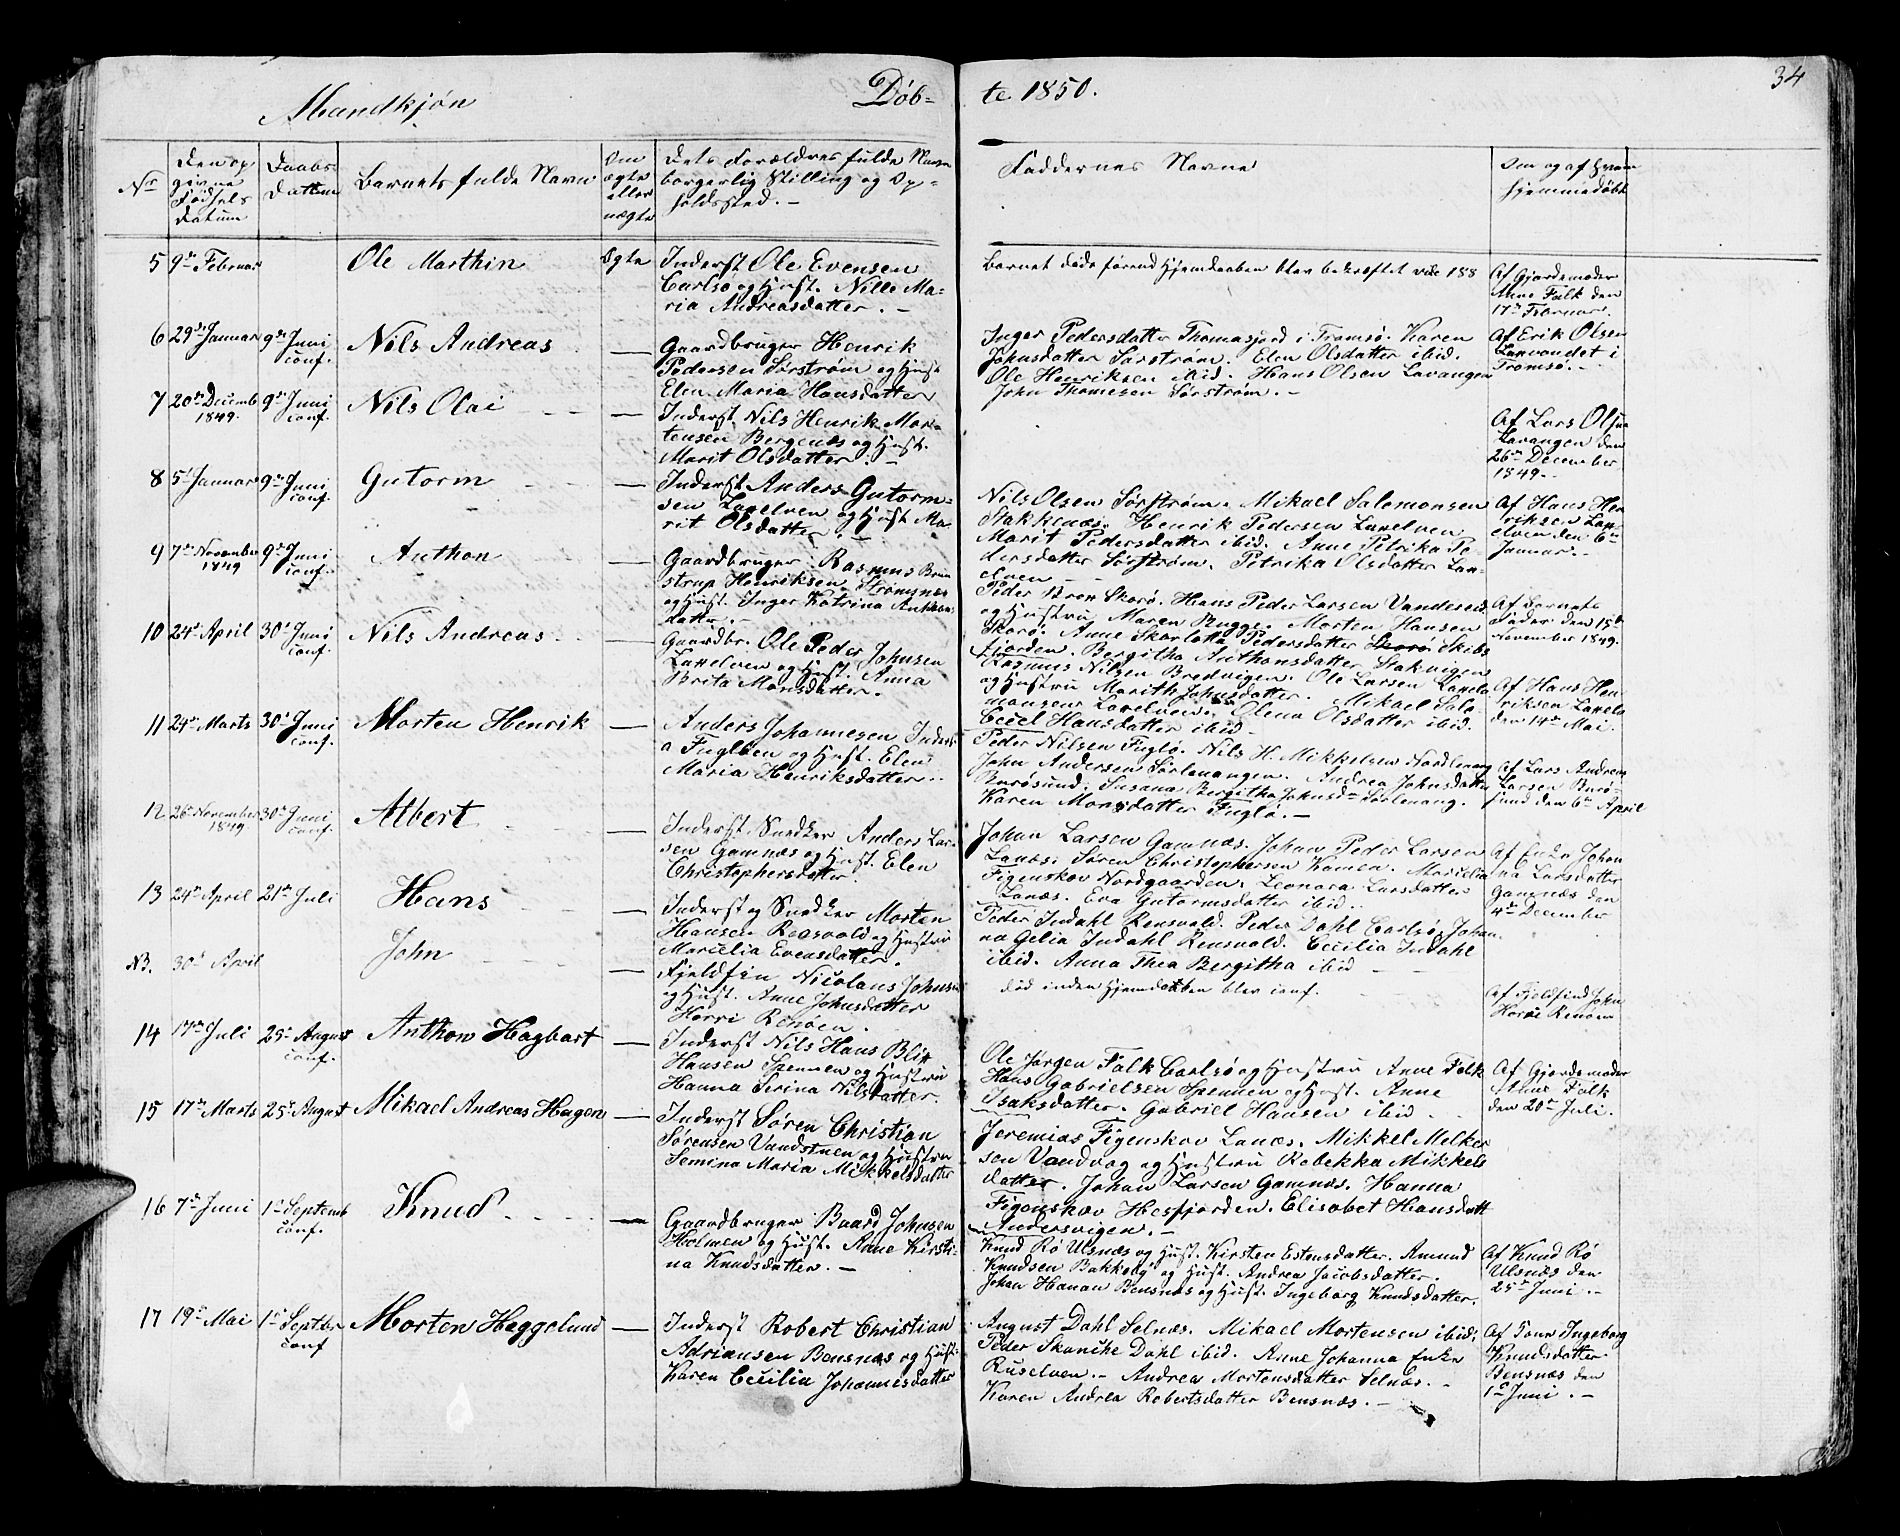 34
Mandkjøn Døb= te 1850.
Nr
Den op
givne
Fødsels
Datum
Daabs
Datum
Barnets fulde Navn
Om
ægte
eller
uægte
Dets Forældres fulde Navne
borgerlig Stilling og Op=
holdssted. —
Faddernes Navne
Om og af Hvem
hjemmedøbt
5 9de Februar Ole Marthin Ægte
Inderst Ole Evensen
Carlsø og Hust. Nille Ma=
ria Andreasdatter. —
Barnet døde førend Hjemdaaben blev bekræftet
Af Gjordemoder
Anne Falk den
17de Februar.
6 29de Januar 9de Juni
conf.
Nils Andreas —
Gaardbruger Henrik
Pedersen Sørstrøm og Hust
Elen Maria Hansdatter
Inger Pedersdatter Thomasjord i Tromsø. Karen
Johnsdatter Sørstrøm. Elen Olsdatter ibid.
Ole Henriksen ibid. Hans Olsen Lavangen
John Thomesen Sørstrøm. —
Af Erik Olsen
Laxvandet i
Tromsø. —
7 20de Decemb
1849.
9de Juni
conf.
Nils Olai —
Inderst Nils Henrik Mor=
tensen Bergenæs og Hust.
Marit Olsdatter. —
Af Lars Olsen
Lavangen den
26de December
1849. —
8 5te Januar 9de Juni
conf.
Gutorm —
Inderst Anders Gutorm=
sen Laxelven og Hust Ma=
rit Olsdatter. —
Nils Olsen Sørstrøm. Mikael Salomonsen
Stakkenæs. Henrik Pedersen Laxelven
Marit Pedersdatter ibid. Anne Petrika Pe=
dersdatter Sørstrøm. Petrika Olsdatter Lax=
elven —
Af Hans Hen
riksen Lax=
elven den 6te
Januar. —
9 7de November
1849
9de Juni
conf.
Anthon —
Gaardbruger Rasmus Brun
strup Henriksen Strømsnæs
og Hust. Inger Katrina Anthons
datter. —
Peder Bron Skorø. Hans Peder Larsen
og Hustru Maren Bugge. Morten Hansen
Skorø. Anne Skarlotta Pedersdatter Skibs
fjorden. Bergitha Anthonsdatter Stakvigen
Af Barnets
Fader den 15de
November 1849.
10 24de April 30te Juni
conf.
Nils Andreas —
Gaardbr. Ole Peder Johnsen
Laxelven og Hust. Anna
Brita Monsdatter.
Rasmus Nilsen Bredvigen. Ole Larsen Laxelv
og Hustru Marith Johnsdatter. Mikael Salo=
monsen Laxelven. Olena Olsdatter ibid.
Cecel Hansdatter ibid —
Af Hans Hen=
riksen Laxelv
den 14de Mai.
11 24de Marts 30te Juni
conf.
Morten Henrik —
Anders Johannesen Inders
a Fugløen og Hust. Elen
Maria Henriksdatter.
Peder Nilsen Fuglø. Nils H. Mikkelsen Nordlenang
John Andersen Sørlenangen. Andrea Johnsdatter
Burøsund. Susana Bergitha Johnsdtr Sørlenang.
Karen Monsdatter Fuglø. —
Af Lars Andreas
Larsen Burø=
sund den 6te April
12 26de November
1849.
30te Juni
conf.
Albert —
Inderst Snedker Anders Lar=
sen Gamnæs og Hust. Elen
Christophersdatter.
Johan Larsen Gamnæs. Johan Peder Larsen
Lanæs. Søren Christophersen Kamen. Marielia
Figenskov Nordgaarden. Leonora Larsdatter
Lanæs. Eva Gutormsdatter ibid.
Af Enke Johan
na Larsdatter
Gamnæs den
4de December
13 24de April 21de Juli Hans —
Inderst og Snedker Morten
Hansen Reasvold og Hustru
Marielia Evensdatter.
Peder Indahl Rensvald. Peder Dahl Carlsø. Johan
na Gelia Indahl Rensvald. Cecilia Indahl
ibid. Anna Thea Bergitha ibid —
NB. 30te April John —
Fjeldfin Nicolaus Johnsen
og Hust. Anne Johnsdatter
Horri Renøen.
død inden Hjemdaaben blev conf.
Af Fjeldfind John
Horri Renøen
14 17de Juli 25de August
conf.
Anthon Hagbart —
Inderst Nils Hans Blix
Hansen Spennen og Hustru
Hanna Serina Nilsdatter.
Ole Jørgen Falk Carlsø og Hustru Anne Falk
Hans Gabrielsen Spennen og Hust. Anne
Isaksdatter. Gabriel Hansen ibid. —
Af Gjordemoder
Anne Falk
den 20de Juli.
15 17de Marts 25de August Mikael Andreas Hagen —
Inderst Søren Christian
Sørensen Vandstuen og Hustru
Semina Maria Mikkelsdatter
Jeremias Figenskov Lanæs. Mikkel Melker
sen Vandvag og Hustru Rebekka Mikkels
datter. Johan Larsen Gamnæs. Hanna
Figenskov Hesfjorden. Elisabet Hansdatt
Andersvigen. —
16 7de Juni 1ste Septemb
conf.
Knud —
Gaardbruger Baard Johnsen
Holmen og Hust. Anne Kirsti=
na Knudsdatter. —
Knud Rø Ulsnæs og Hust. Kirsten Estensdatter. Amund
Knudsen Bakkeby og Hust. Andrea Jacobsdatter.
Johan Hanan Bensnæs og Hust. Ingeborg Knudsdatter.
Af Knud Rø
Ulsnæs den
25de Juni. —
17 19de Mai 1ste Septbr
conf
Morten Heggelund —
Inderst Robert Christian
Adriansen Bensnæs og Hust.
Karen Cecilia Johannesdatter
August Dahl Selnæs. Mikael Mortensen ibid.
Peder Skanche Dahl ibid. Anne Johanna Enke
Ruselven. — Andrea Mortensdatter Selnæs. —
Karen Andrea Robertsdatter Bensnæs. —
Af Ingeborg
Knudsdatter
Bensnæs den
1ste Juni. —